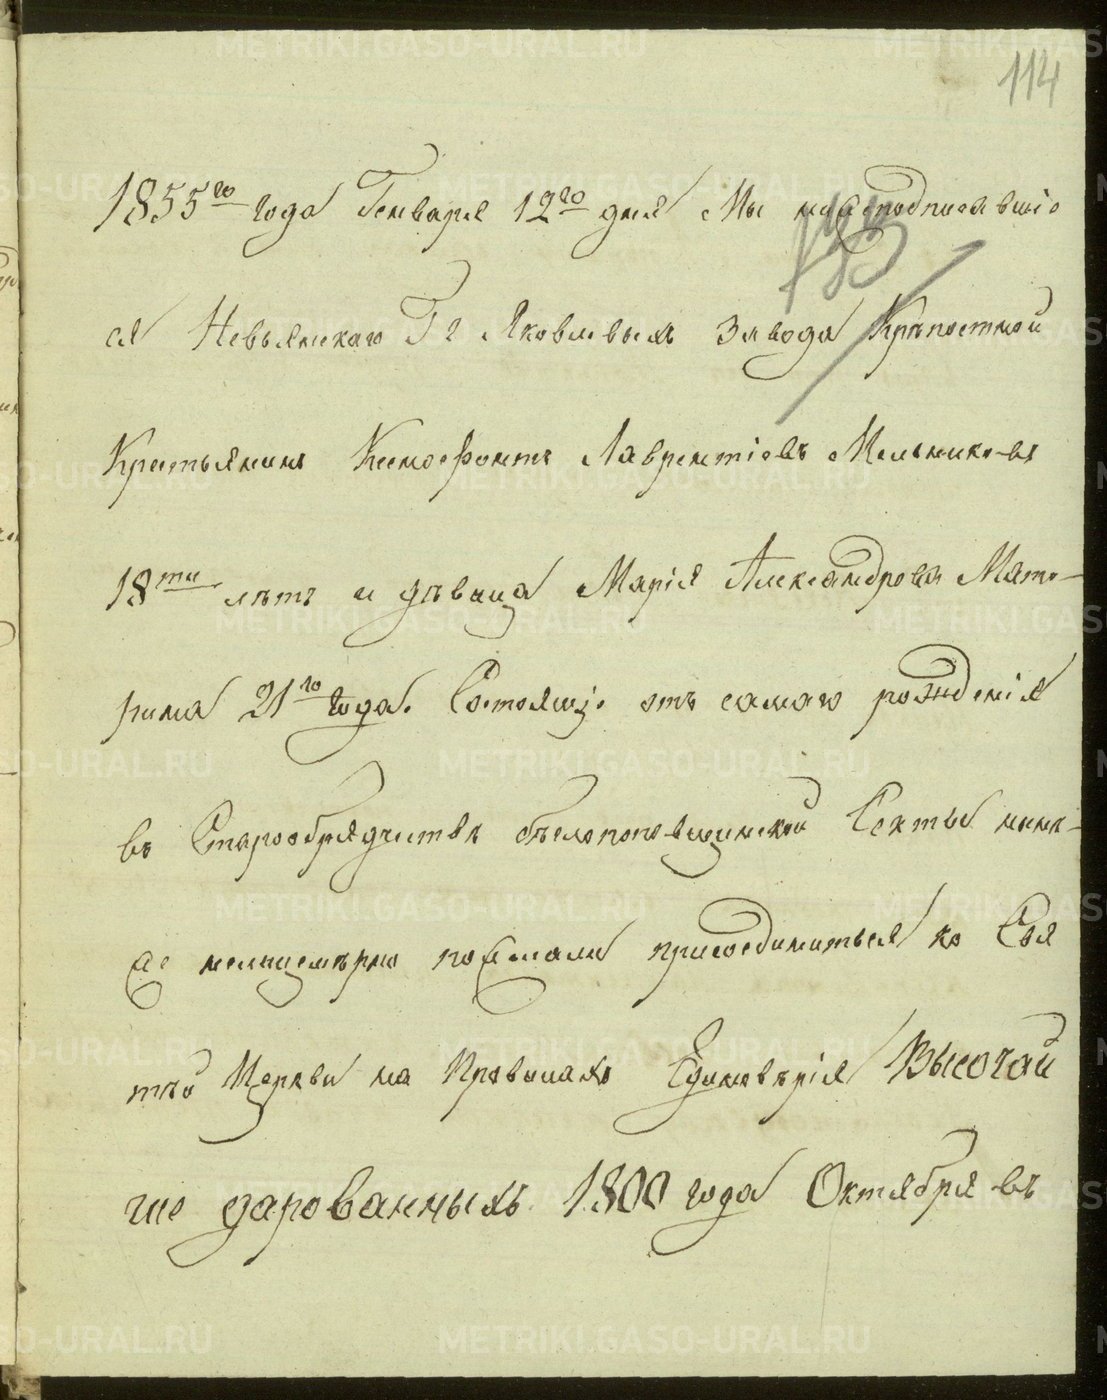 114
1855го года Генваря 12го дня Мы нижеподписавшiе
ся Невьянскаго Гг Яковлевыхъ Завода Крѣпостной
Крестьянинъ Ксенофонтъ Лаврентiевъ Мельниковъ
18ти лѣтъ и дѣвица Марiя Александрова Мате-
рина 21го года. Состоящiе отъ самаго рожденiя
въ Старообрядчествѣ бѣглопоповщинской Секты нынѣ-
же нелицемѣрно пожелали присоединиться ко Свя
тѣй Церкви на Правилахъ Единовѣрiя Высочай
ше дарованныхъ 1800 года Октября въ